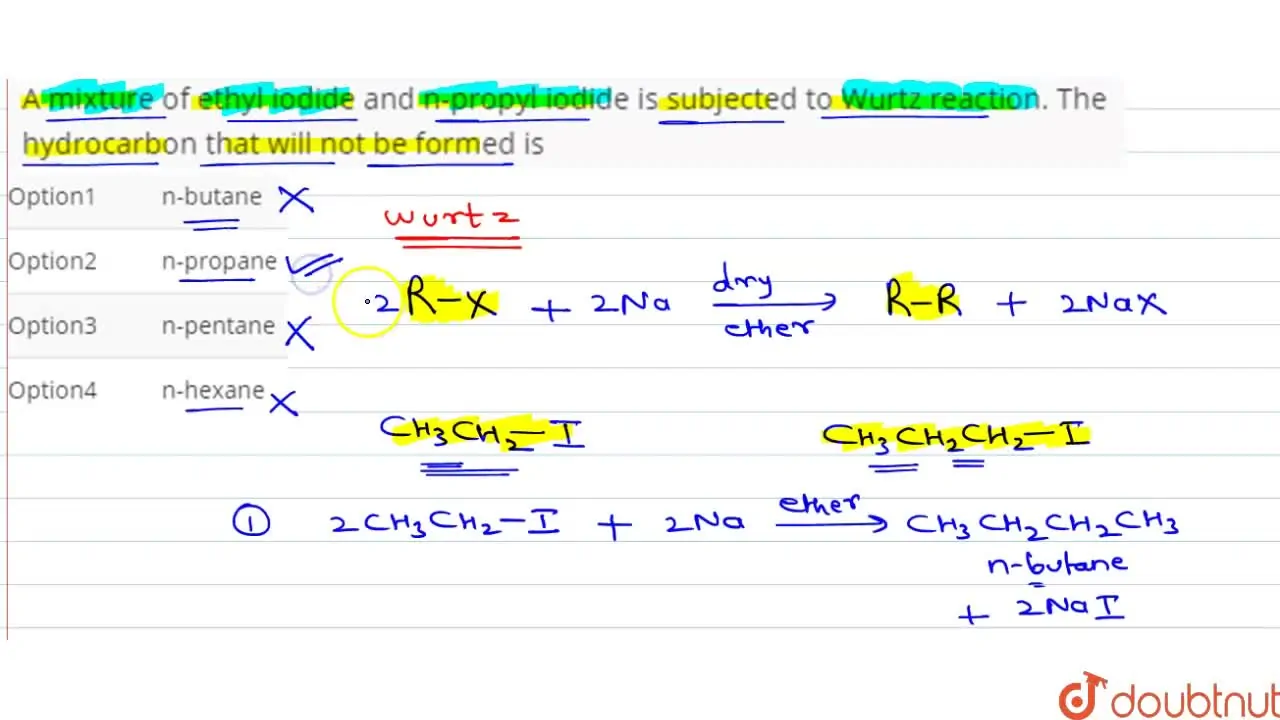 A mixture of ethyl iodide and n-propyl iodide is subjected to Wurtz reaction. The
hydrocarbon that will not be formed is
Option1 n-butane X
Wurtz
Option2 n-propane ✓
2 R-X + 2Na dry ether → R-R + 2NaX
Option3 n-pentane X
Option4 n-hexane X
CH₃CH₂-I CH₃CH₂CH₂-I
① 2CH₃CH₂-I + 2Na ether → CH₃CH₂CH₂CH₃
n-butane
+ 2NaI
doubtnut